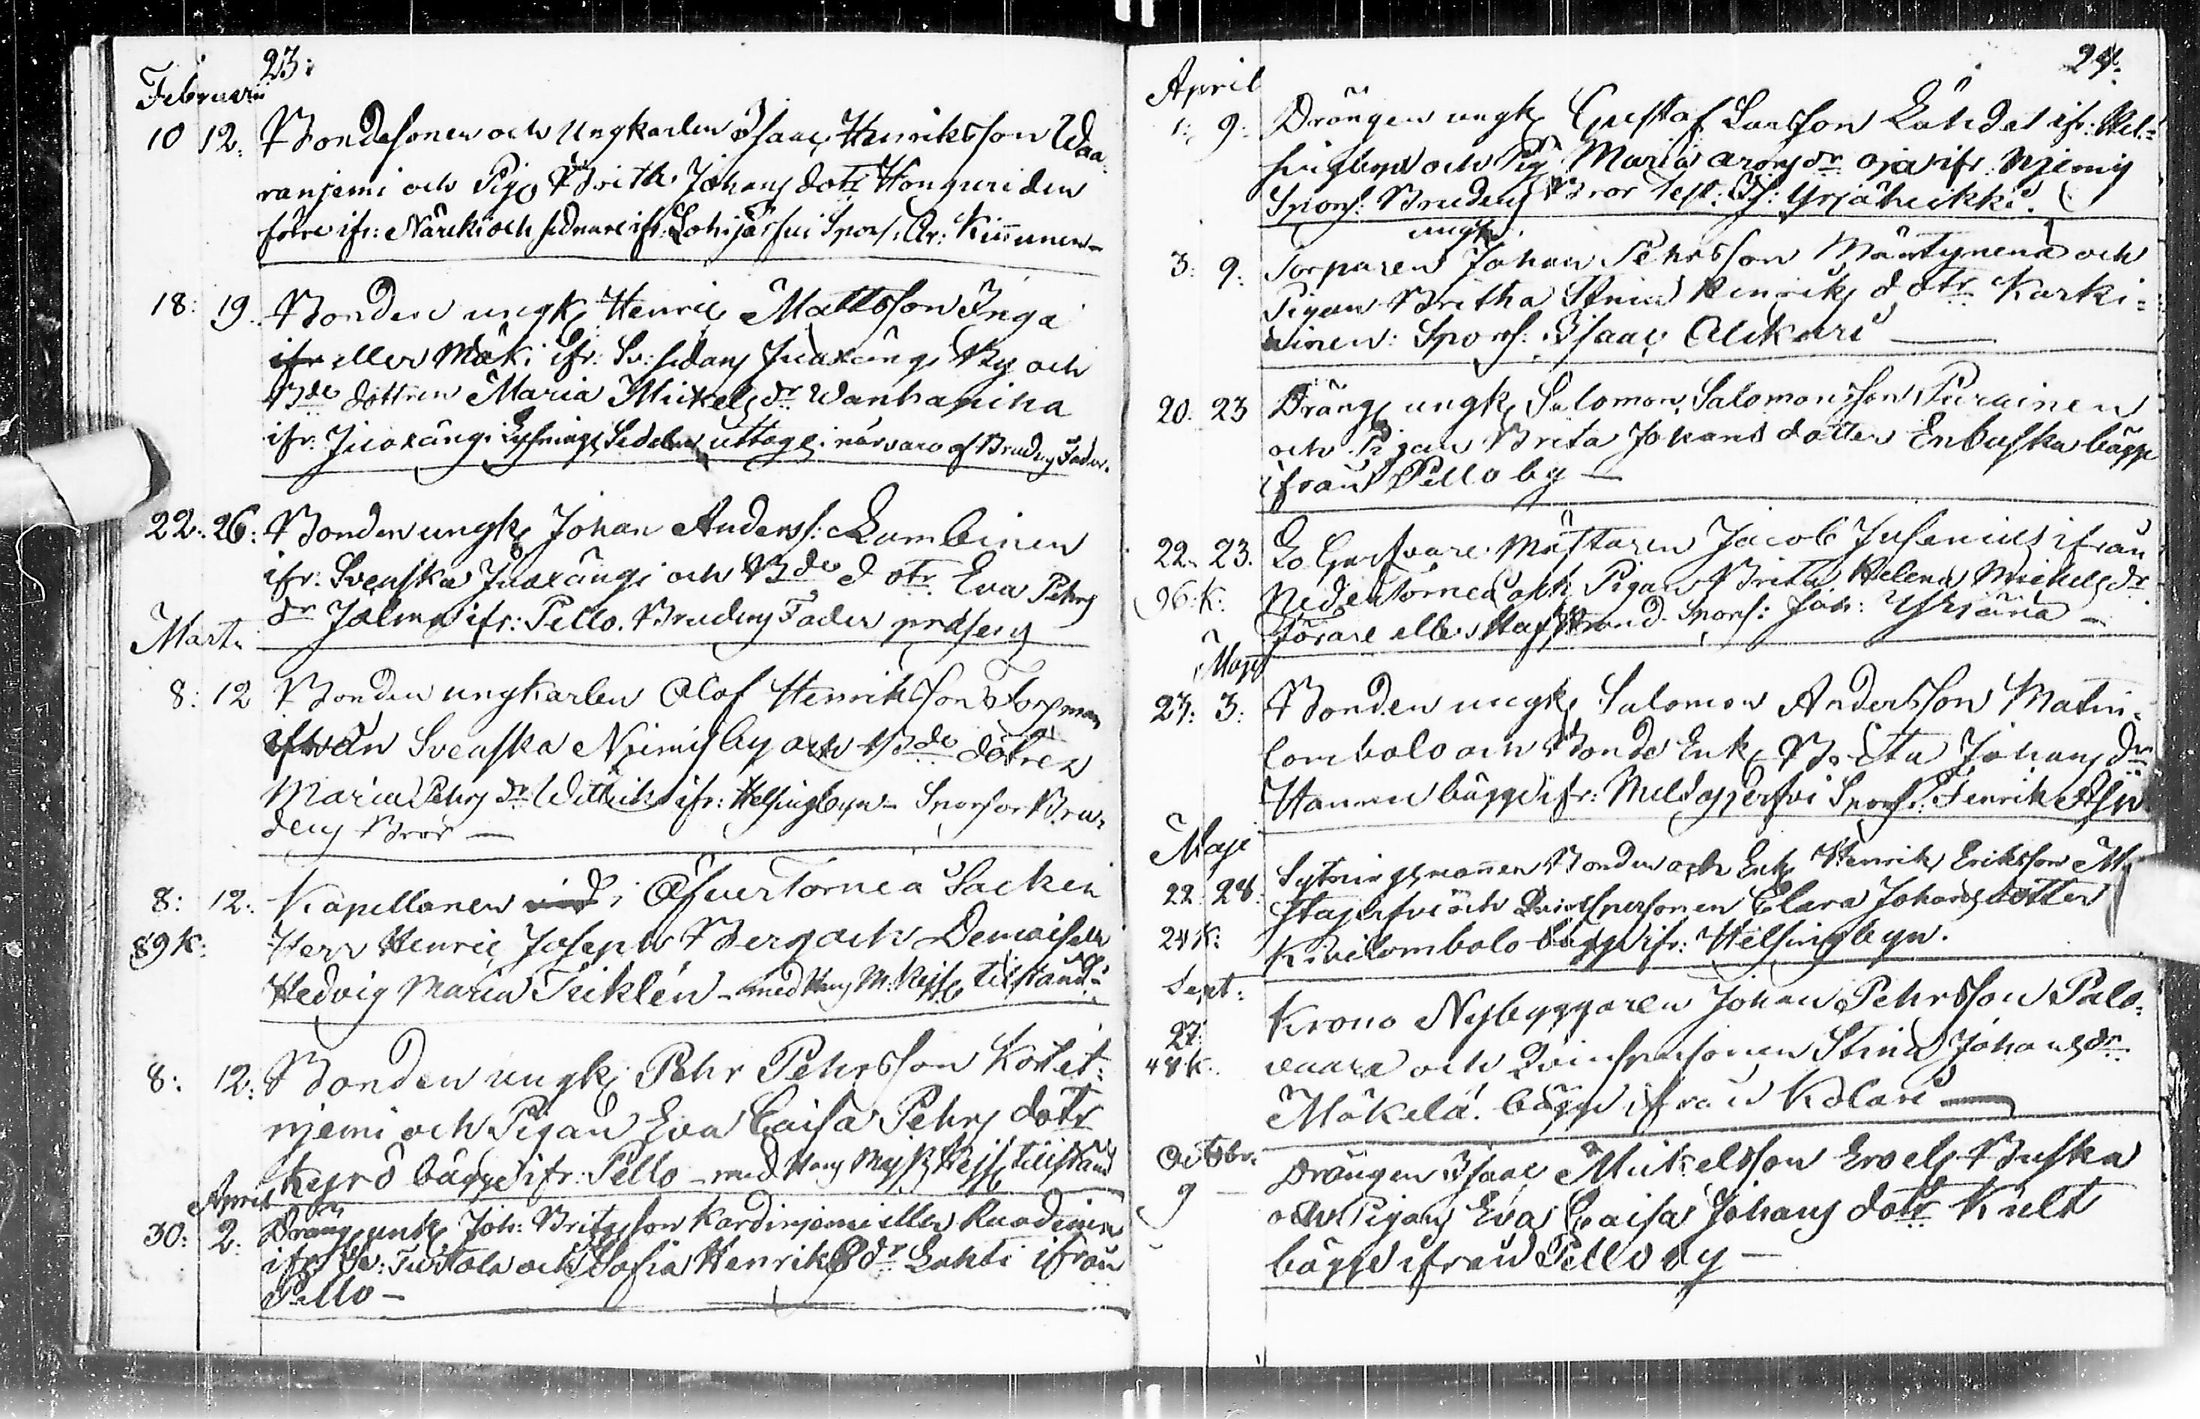 23:
Februarii
10 12. Bondesonen och Ungkarlen Isaac Henriksson Waa-
ranjemi och Pig. Brita Johans dotr Honguri den
förre ifr: Närki och sednare ifr: Lohijärfui Spons. Ar: Kinnunen
18: 19. Bonden ungk. Henric Mattsson Inga
eller Mäki ifr: Sv: sidans Juoxängi By och
Bde dottren Maria Mickels dr Wanhapiha
ifr: Juoxängi Lysnings Sedelen uttogs i närvaro af Brudens Fader.
22: 26: Bonden ungk. Johan Anderss: Lambinen
ifr: Svenska Juoxängi och Bde dotr. Eva Pehrs
dr Jolma ifr: Pello. Brudens Fader præsens
Marti
8: 12 Bonden ungkarlen Olof Henriksson
ifrån Svenska Niemis by och Bde dotren
Maria Pehrs dr ifr: Helsingbyn - Sponsor Bru-
dens Bror —
8: 12: Kapellanen i Öfver Torneå Socken
89 k: Herr Henric Joseph Berg och Demoiselle
Hedvig Maria - med Hans M: Kejs. tilstånd -
8: 12: Bonden ungk. Pehr Pehrsson Kort-
njemi och Pigan Eva Caisa Pehrs dotr
Keyrö bägge ifr: Pello - med Hans Majst. Kejs. tillstånd
April
30: 2: Dräng. enk. Joh: Kardinjemi eller
ifr Sv: Turtola och Sofia Henriks dr Lahti ifrån
Pello -
24.
April
1: 9: Drängen ungk. Gustaf Larsson Lahdet ifr: Hel-
singbyn och Pig. Maria Arons dr Oja ifr: Njemis
Spons: Brudens Bror Test: Is: Yrjänheikki.
ungk.
3: 9: Torparen Johan Pehrsson Mäntynenä och
Pigan Britha Stina Henriks dotr. Karki-
ainen: Spons: Isaac Alikari —
20: 23 Dräng. ungk. Salomon Salomonsson Purainen
och Pigan Brita Johans dotter Enbuska bägge
ifrån Pello by —
22. 23. Mästaren Jacob Junenius ifrån
96: k: Neder Torneå och Pigan Brita Helena Mickels dr
eller Spons: Joh: Yrjänä —
Maji
23: 3: Bonden ungk. Salomon Andersson Matin-
lombolo och Bonde Enk. Brita Johans dr
Hannu bägge ifr: Spons: Henrik
Maji
22 28. Sytningsmannen Bonden och Enk. Henrik Eriksson
och Qvinspersonen Clara Johans dotter
24 k: Kivilombolo bägge ifr: Helsingbyn.
Sept:
27 Krono Nybyggaren Johan Pehrsson Palo-
48 k. vaara och Qvinspersonen Stina Johans dr.
Mäkelä. bägge ifrån Kolari —
Octobr.
9 — Drängen Isaac Mickelsson Buska
och Pigan Eva Caisa Johans dotr Kult
bägge ifrån Pello by —